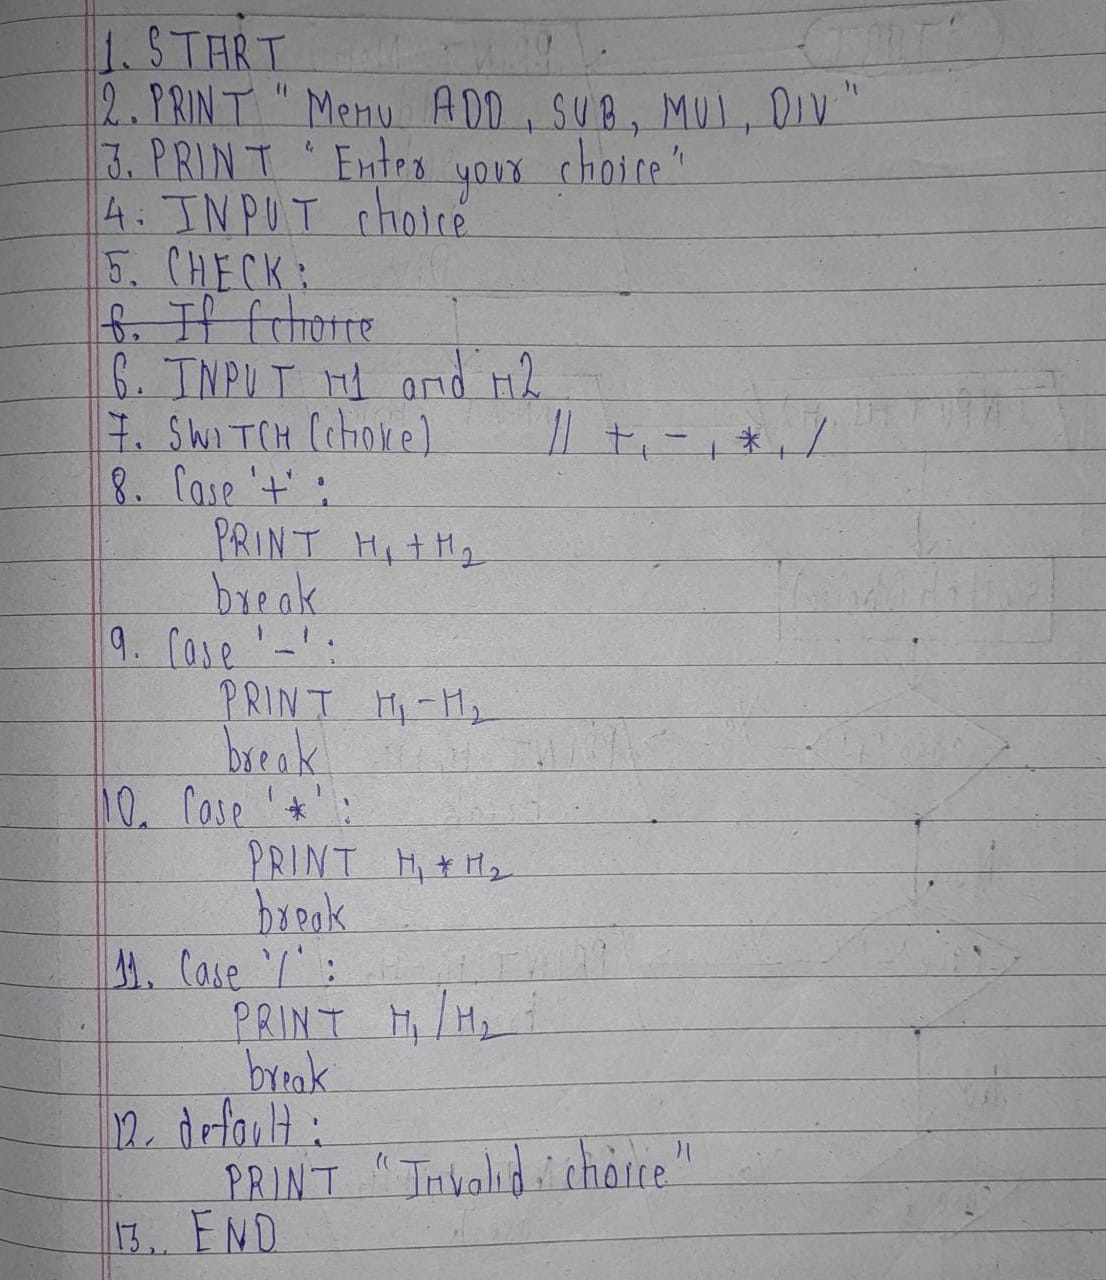 1. START
2. PRINT "Menu ADD, SUB, MUl, DIV"
3. PRINT "Enter your choice"
4. INPUT choice
5. CHECK:
6. If (choice
6. INPUT n1 and n2
7. SWITCH (choice) // +, -, *, /
8. Case '+':
PRINT n1 + n2
break
9. Case '-':
PRINT n1 - n2
break
10. Case '*':
PRINT n1 * n2
break
11. Case '/':
PRINT n1 / n2
break
12. default:
PRINT "Invalid choice"
13. END